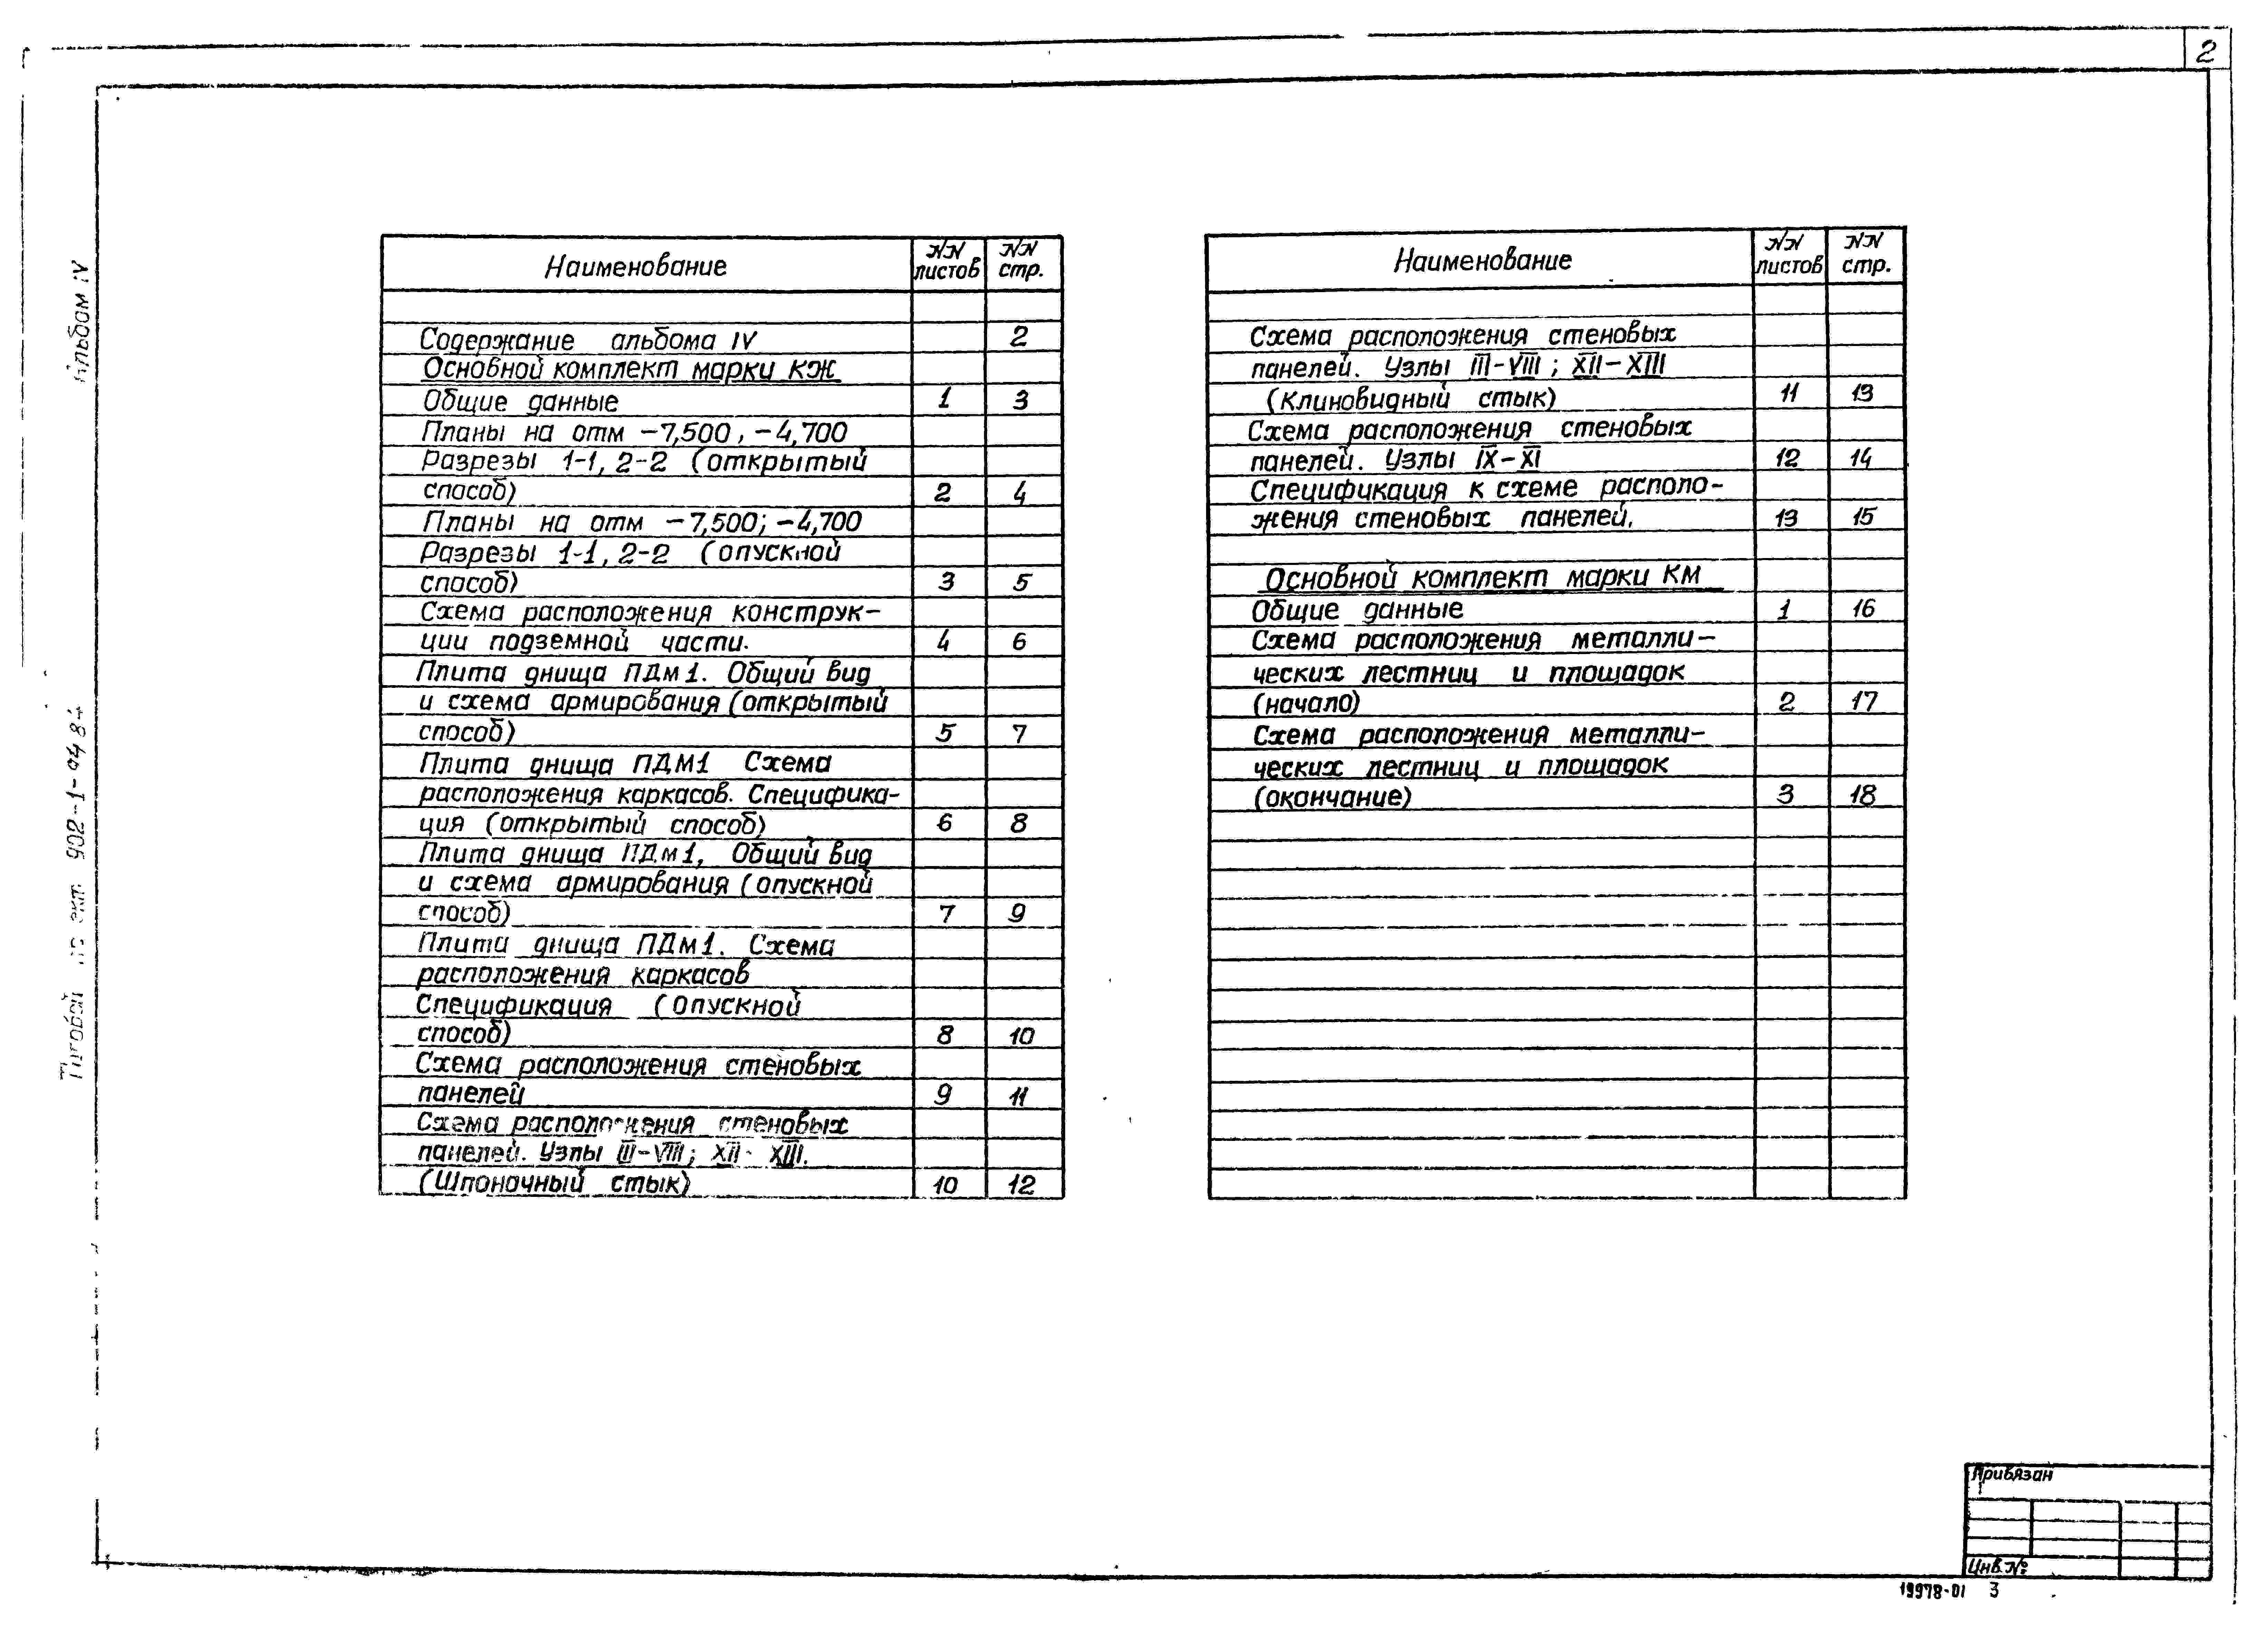 2
Альбом IV
Наименование NN листов NN стр.
Содержание альбома IV 2
Основной комплект марки КЖ
Общие данные 1 3
Планы на отм -7,500, -4,700
Разрезы 1-1, 2-2 (открытый
способ) 2 4
Планы на отм -7,500; -4,700
Разрезы 1-1, 2-2 (опускной
способ) 3 5
Схема расположения конструк-
ции подземной части. 4 6
Плита днища ПДм1. Общий вид
и схема армирования (открытый
способ) 5 7
Плита днища ПДМ1 Схема
расположения каркасов. Специфика-
ция (открытый способ) 6 8
Плита днища ПДм1, Общий вид
и схема армирования (опускной
способ) 7 9
Плита днища ПДм1. Схема
расположения каркасов
Спецификация (опускной
способ) 8 10
Схема расположения стеновых
панелей 9 11
Схема расположения стеновых
панелей. Узлы III-VIII; XII- XIII.
(Шпоночный стык) 10 12
Наименование NN листов NN стр.
Схема расположения стеновых
панелей. Узлы III-VIII; XII-XIII
(Клиновидный стык) 11 13
Схема расположения стеновых
панелей. Узлы IX-XI 12 14
Спецификация к схеме располо-
жения стеновых панелей. 13 15
Основной комплект марки КМ
Общие данные 1 16
Схема расположения металли-
ческих лестниц и площадок
(начало) 2 17
Схема расположения металли-
ческих лестниц и площадок
(окончание) 3 18
Привязан
Инв.№
19978-01 3